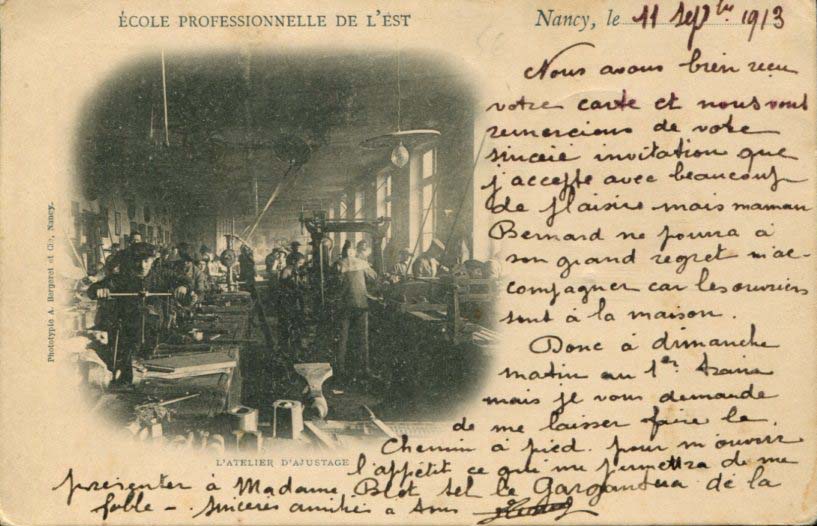 ÉCOLE PROFESSIONNELLE DE L'EST
Nancy, le 11 Sept bre 1913
Nous avons bien reçu
votre carte et nous vous
remercions de votre
sincère invitation que
j'accepte avec beaucoup
de plaisir mais maman
Bernard ne pourra à
son grand regret m'ac-
compagner car les ouvriers
sont à la maison.
Donc à dimanche
matin au 1er train
mais je vous demande
de me laisser faire le
chemin à pied. pour m'ouvrir
l'appétit ce qui me permettra de me
présenter à Madame Blot tel le Gargantua de la
fable - sincères amitiés à tous
L'ATELIER D'AJUSTAGE
Phototypie A. Bergeret et Cie, Nancy.